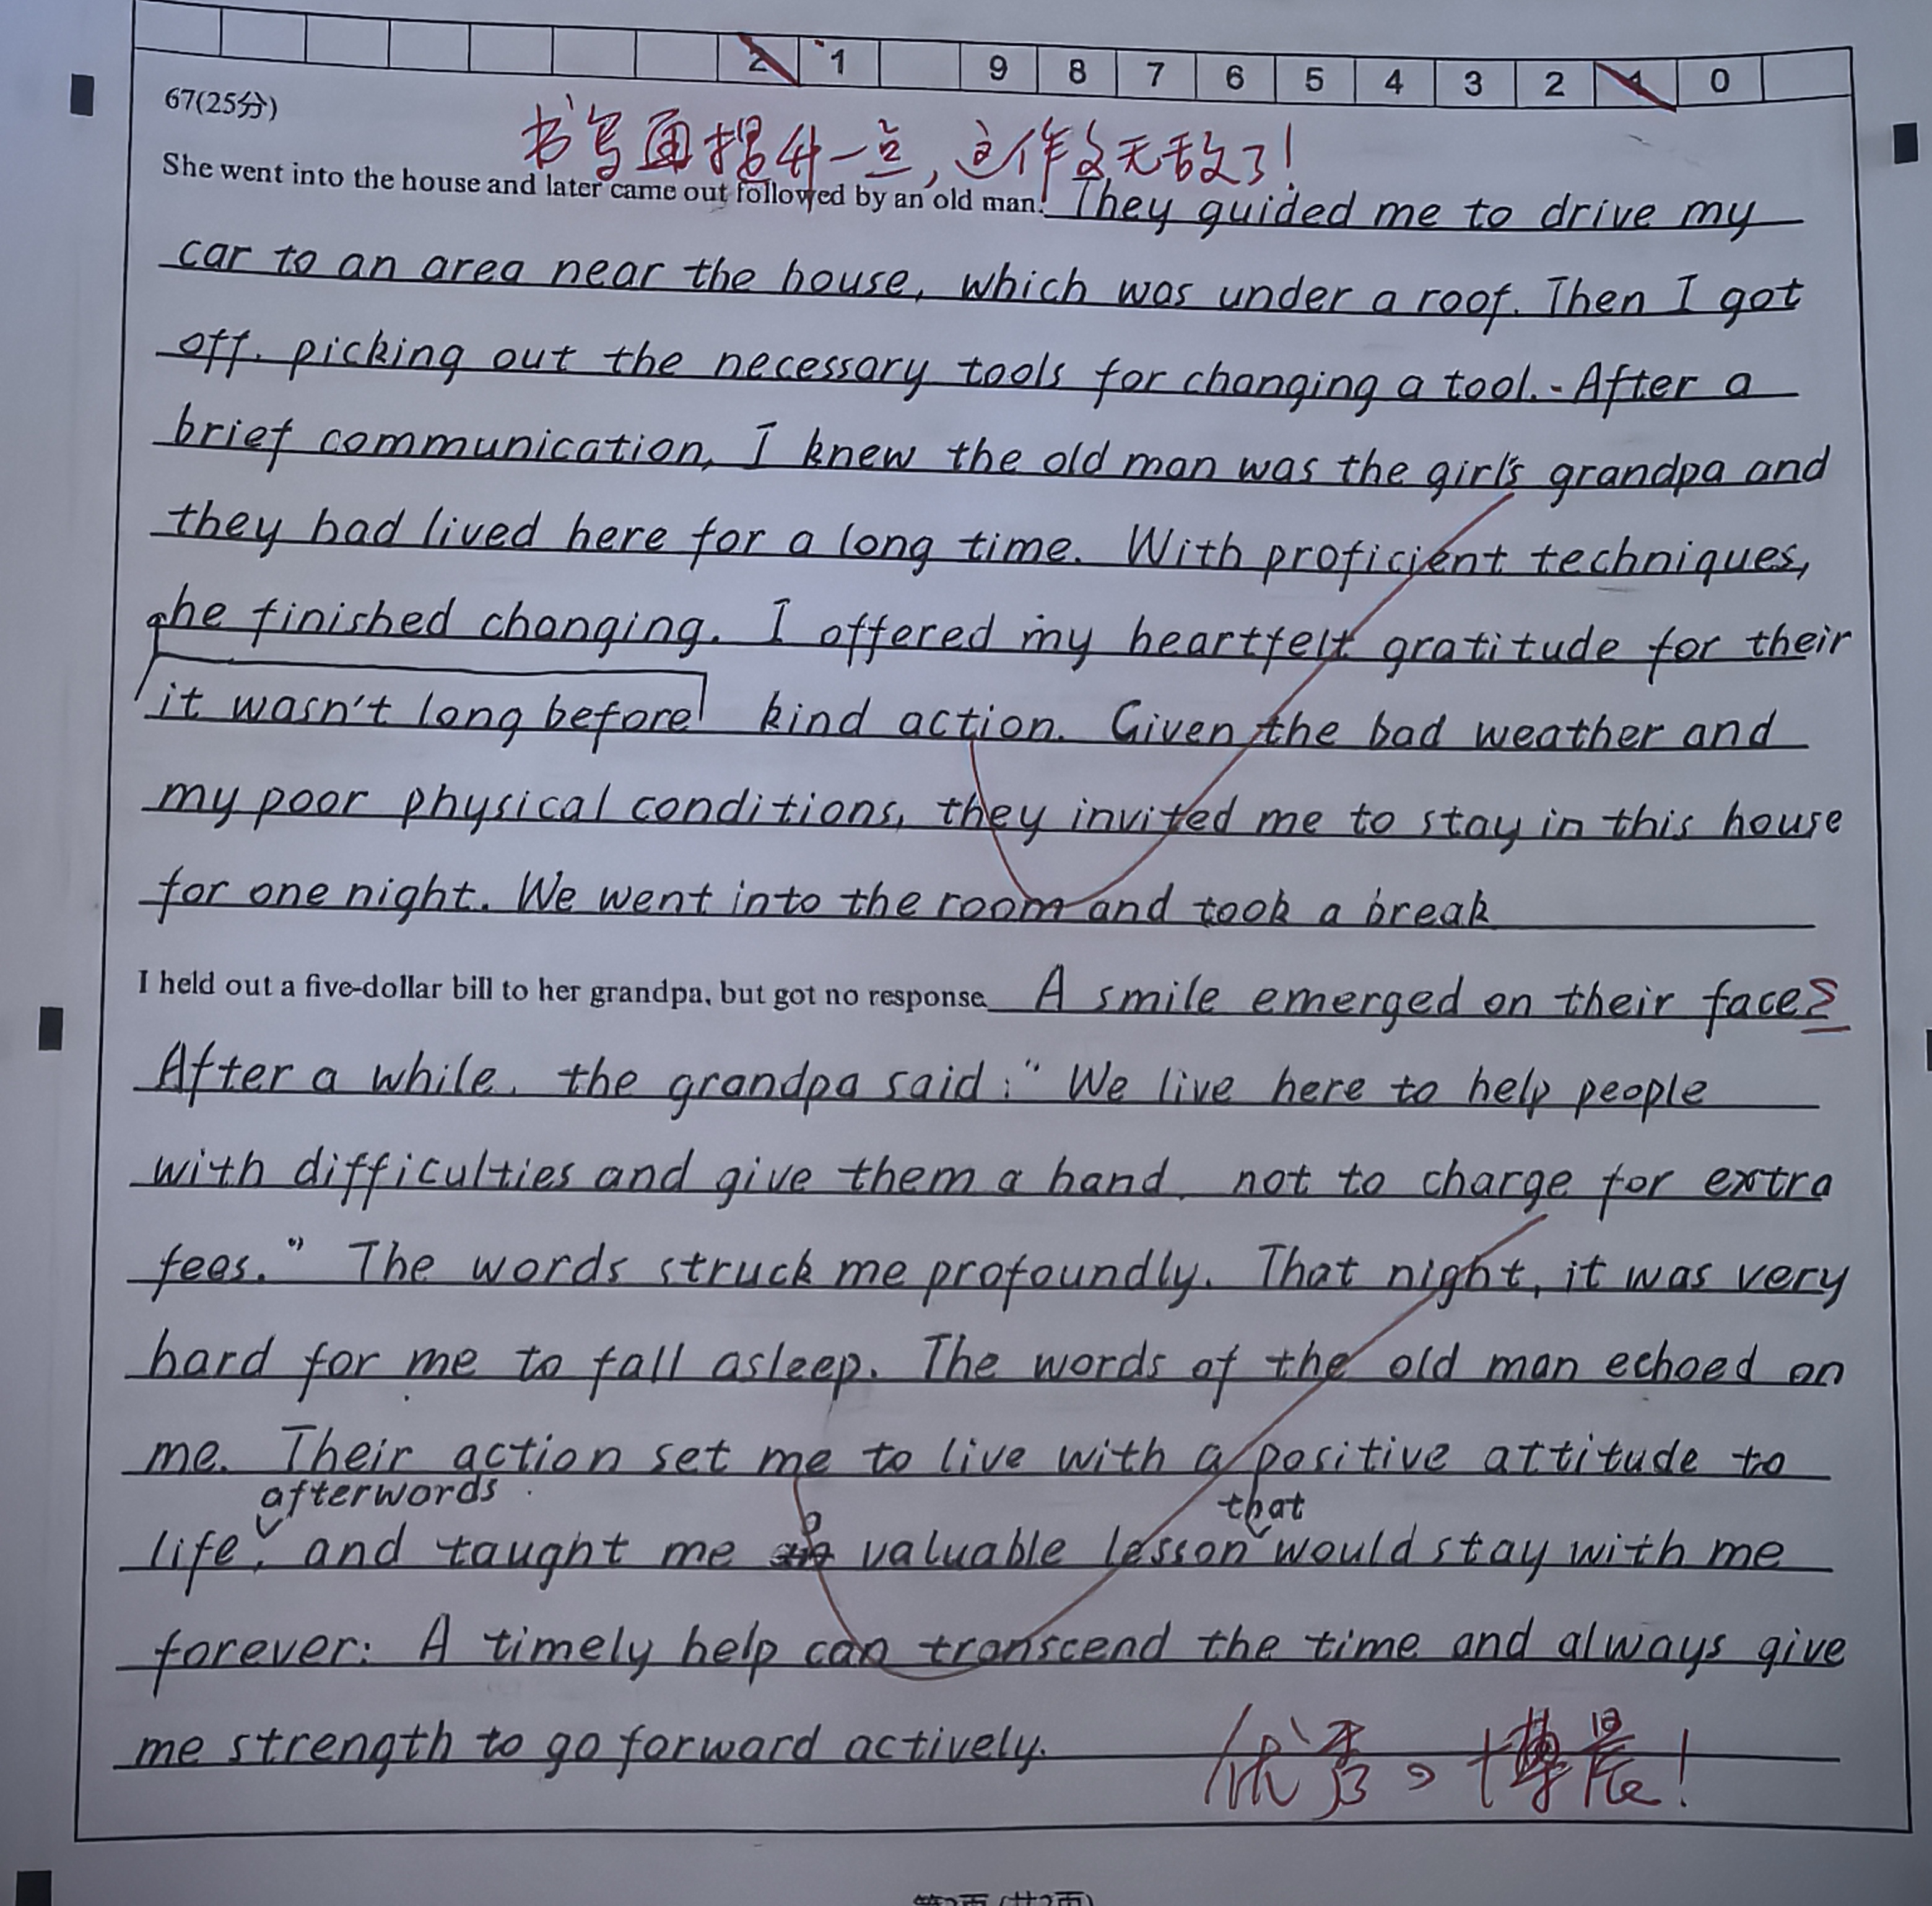 2 1 9 8 7 6 5 4 3 2 1 0
67(25分)
书写再提升一点，这作文无敌了！
She went into the house and later came out followed by an old man. They guided me to drive my
car to an area near the house, which was under a roof. Then I got
off, picking out the necessary tools for changing a tool. After a
brief communication, I knew the old man was the girl's grandpa and
they had lived here for a long time. With proficient techniques,
he finished changing. I offered my heartfelt gratitude for their
it wasn't long before kind action. Given the bad weather and
my poor physical conditions, they invited me to stay in this house
for one night. We went into the room and took a break
I held out a five-dollar bill to her grandpa, but got no response. A smile emerged on their faces
After a while, the grandpa said: "We live here to help people
with difficulties and give them a hand, not to charge for extra
fees." The words struck me profoundly. That night, it was very
hard for me to fall asleep. The words of the old man echoed on
me. Their action set me to live with a positive attitude to
afterwords that
life, and taught me a valuable lesson would stay with me
forever: A timely help can transcend the time and always give
me strength to go forward actively.
优秀。博晨！
第2页 (共2页)